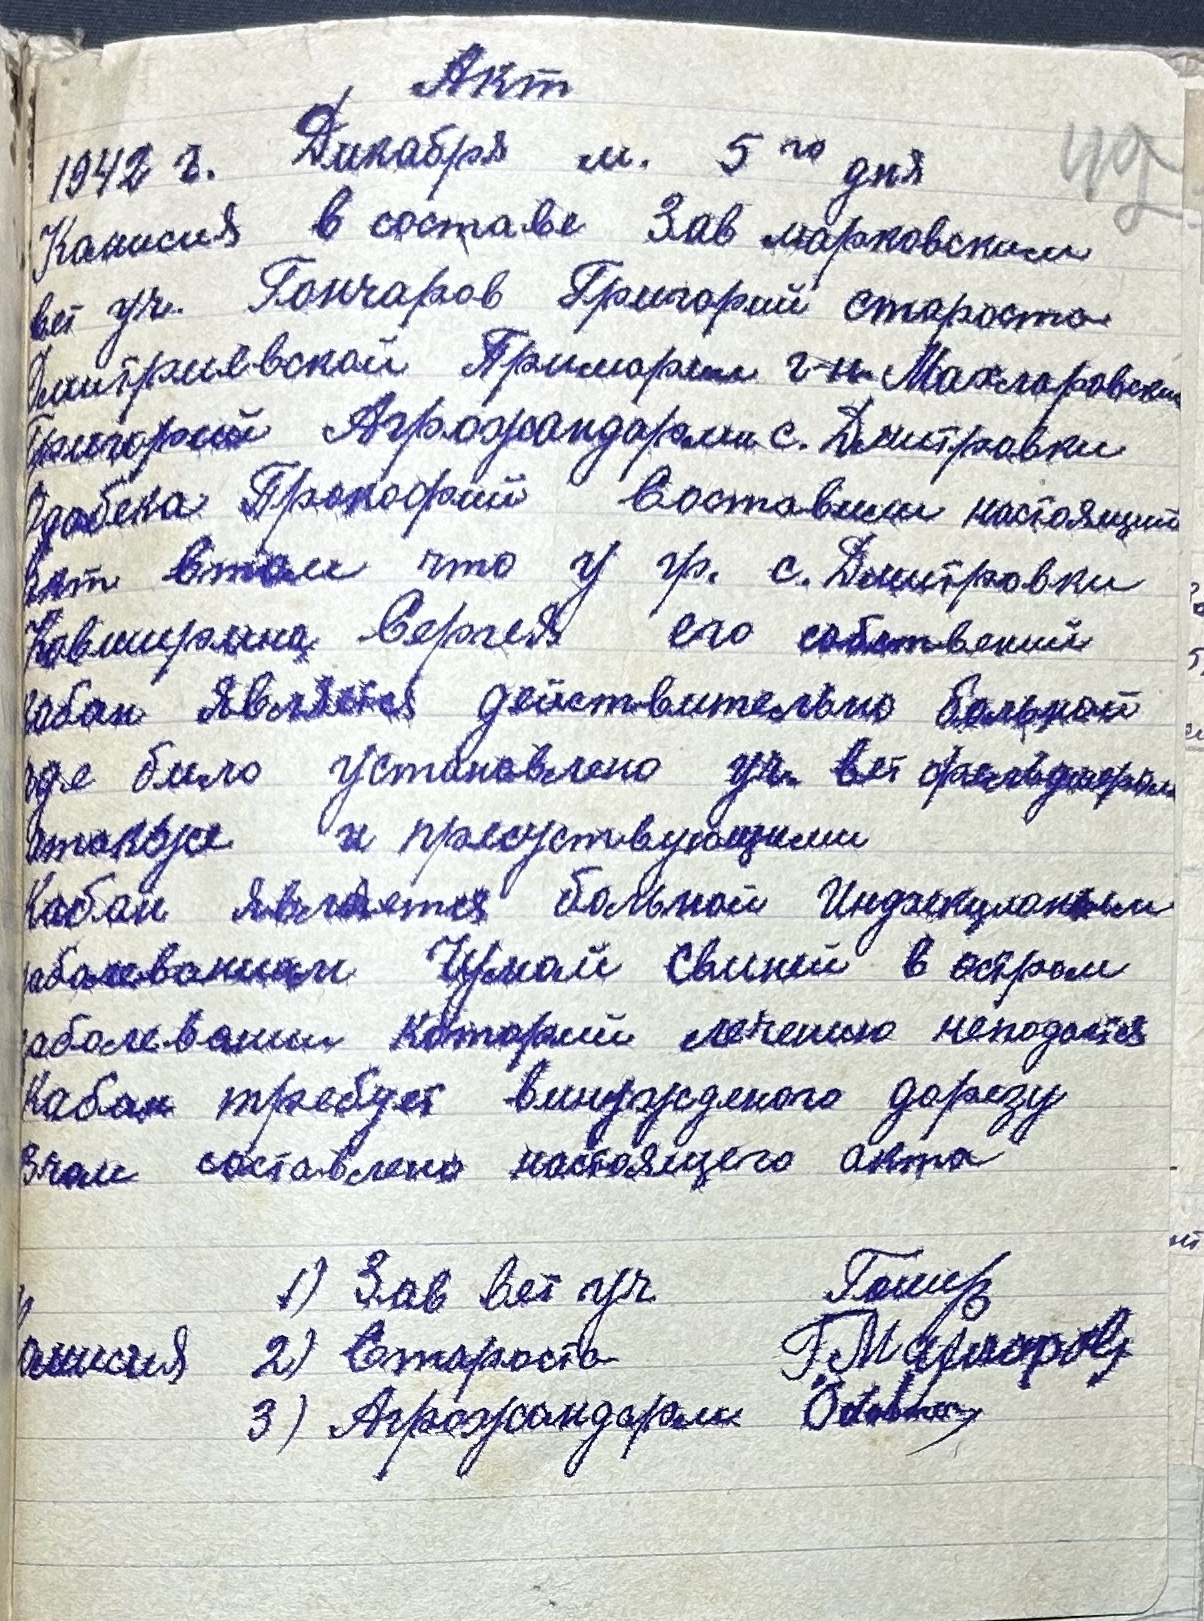 Акт
1942 г. Дикабря м. 5го дня
49
Камисия в составе Зав марковским
вет уч. Гончаров Григорий староста
Дмитриевской Примарии г-н
Григорий Агрожандарми с. Дмитровки
Прокофий Составили настоящий
Акт втом что у гр. с. Дмитровки
Сергея его собствений
кабан является действительно больной
где било установлено уч. вет фельдшером
и присутствующими
Кабан является больной
заболеванием Чумой Свиней в остром
заболевании которий лечению неподается
Кабан требует винужденого дорезу
Вчом составлено настоящего акта
1) Зав вет уч
Камисия 2) Староста
3) Агрожандарми